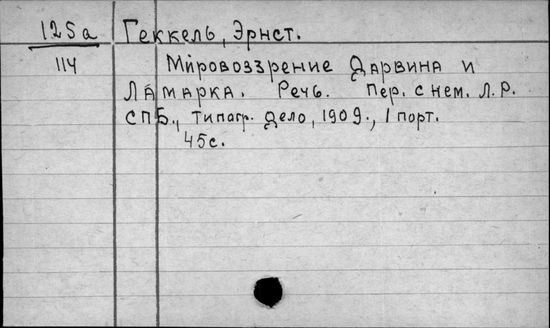 125а Геккель, Эрнст.
114 Мировоззрение Дарвина и
Ламарка. Речь. Пер. с нем. Л.Р.
СПБ., Типогр. Дело, 1909., 1 порт.
45с.